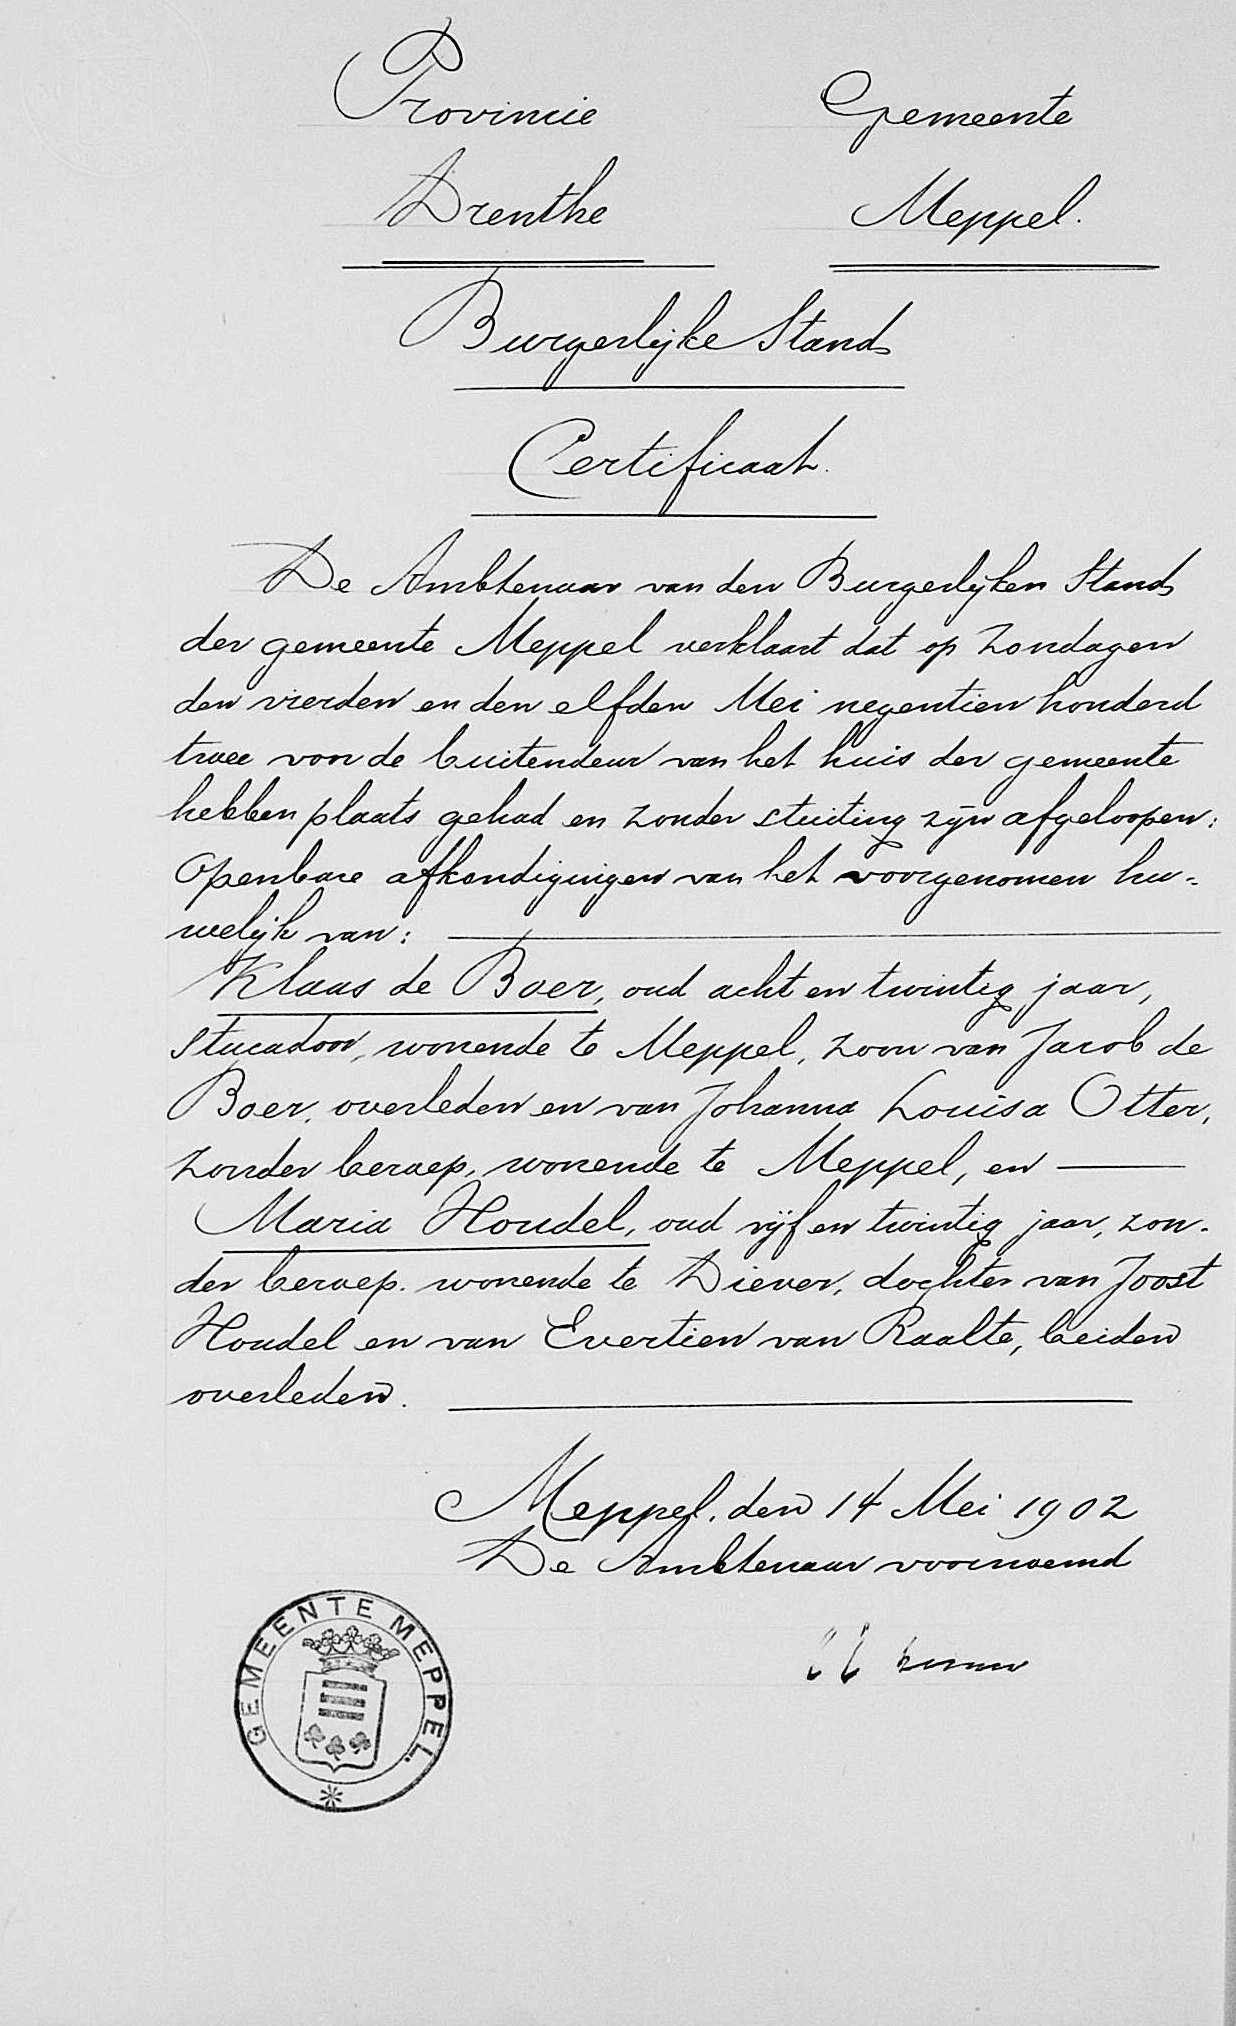 Provincie Gemeente
Drenthe Meppel.
Burgerlijke Stand
Certificaat.
De Ambtenaar van den Burgerlijken Stand
der gemeente Meppel verklaart dat op Zondagen
den vierden en den elfden Mei negentien honderd
twee voor de buitendeur van het huis der gemeente
hebben plaats gehad en zonder stuiting zijn afgeloopen:
Openbare afkondigingen van het voorgenomen hu-
welijk van:
Klaas de Boer, oud acht en twintig jaar,
stucadoor, wonende te Meppel, zoon van Jacob de
Boer, overleden en van Johanna Louisa Otter,
zonder beroep, wonende te Meppel, en
Maria Houdel, oud vijf en twintig jaar, zon-
der beroep. wonende te Diever, dochter van Joost
Houdel en van Evertien van Raalte, beiden
overleden.
Meppel, den 14 Mei 1902
De Ambtenaar voornoemd
GEMEENTE MEPPEL.